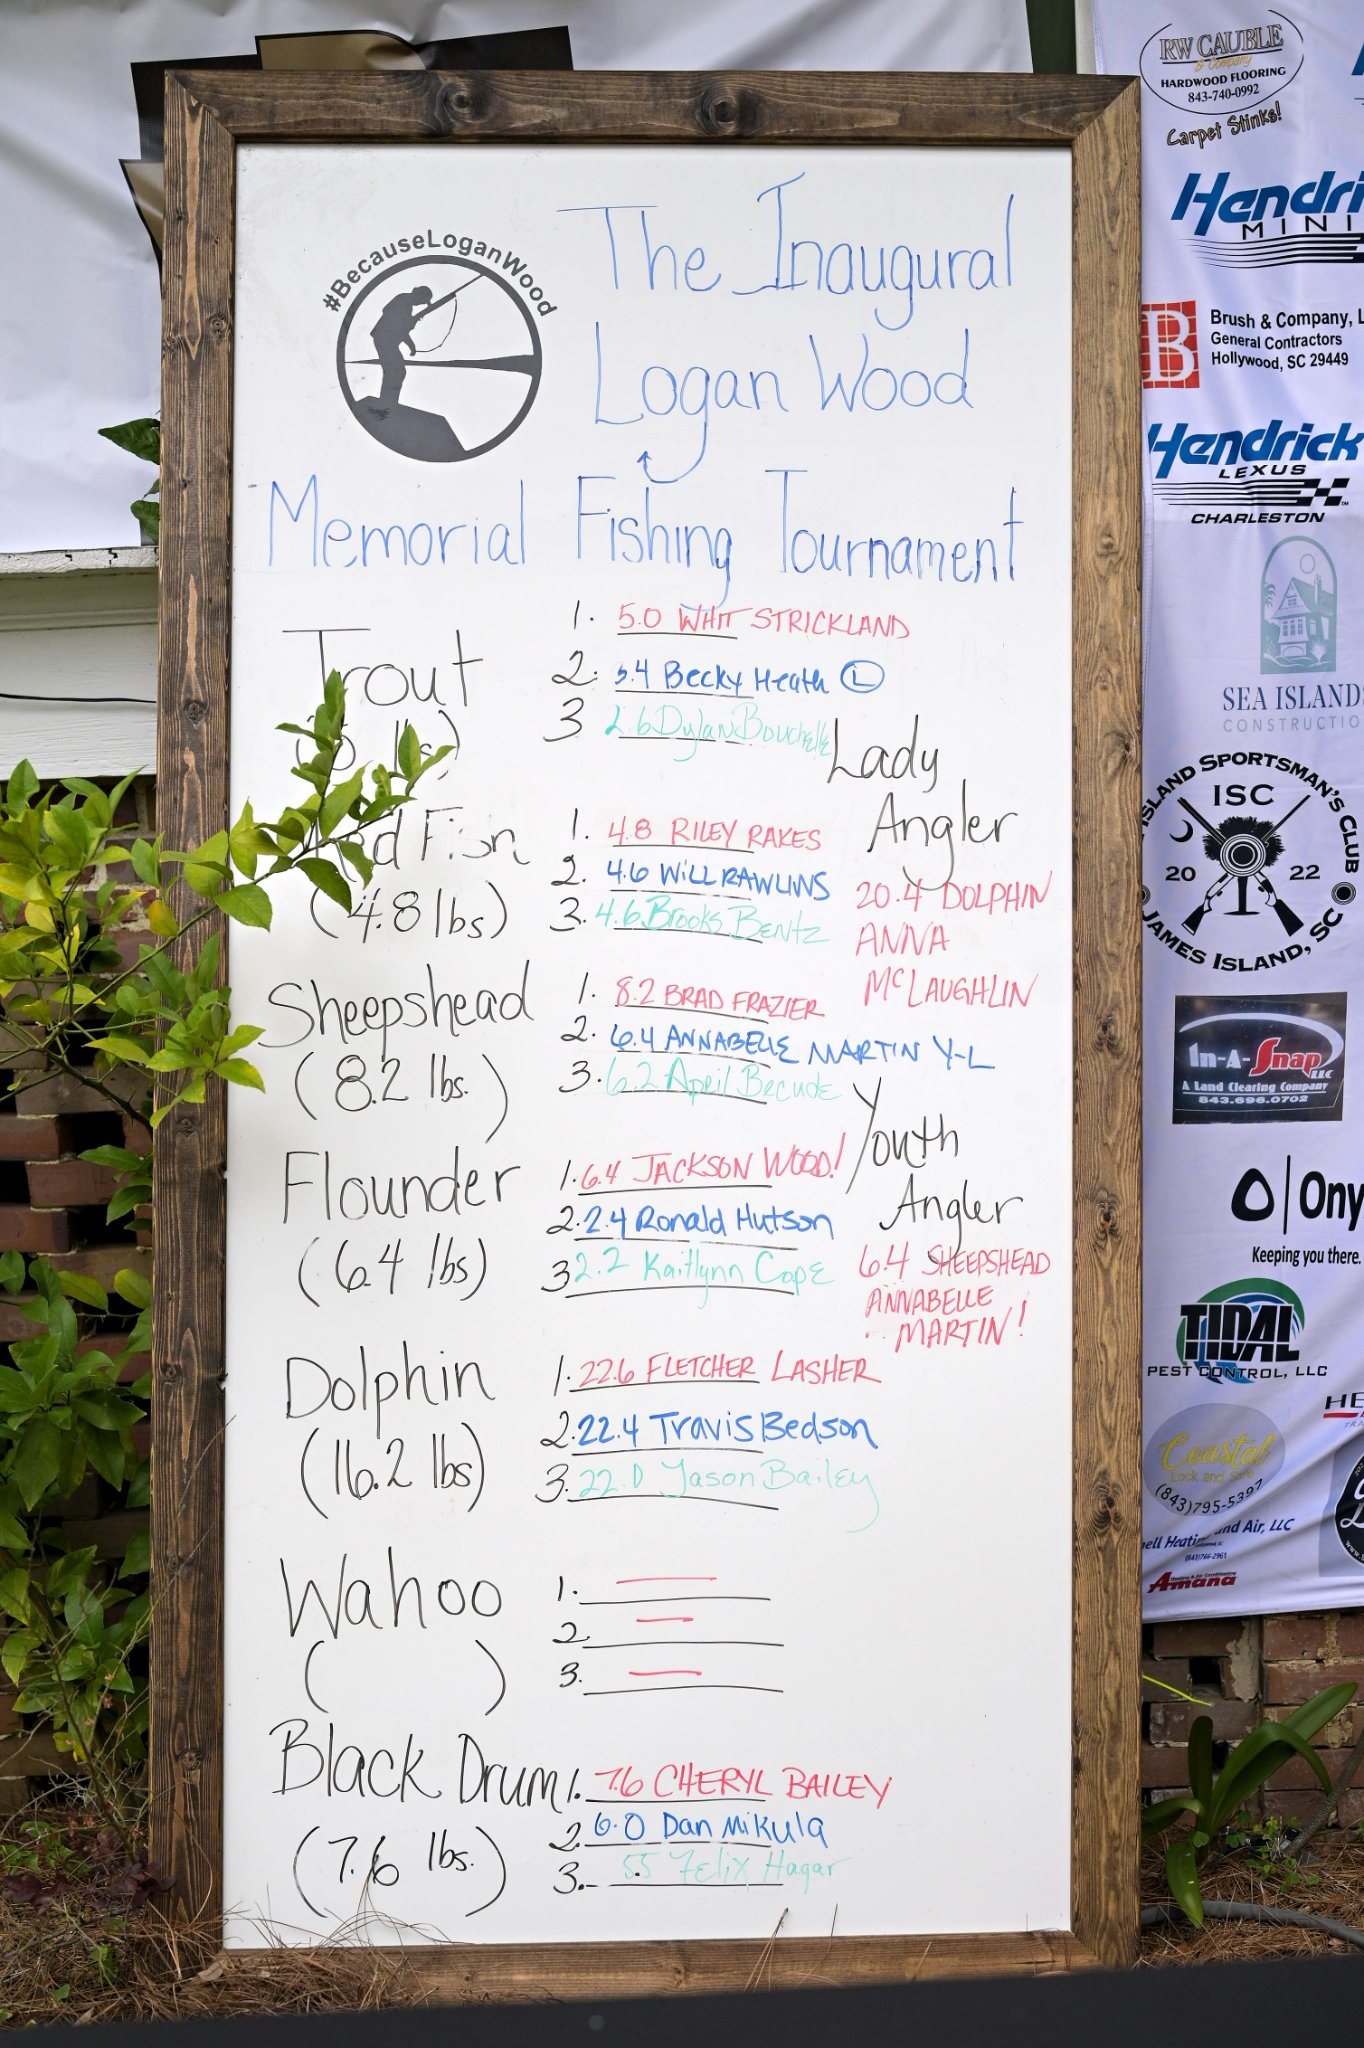 #BecauseLoganWood
The Inaugural
Logan Wood
Memorial Fishing Tournament
Trout
1. 5.0 WHIT STRICKLAND
2. 3.4 Becky Heath L
3 2.6 Dylan Bouchelle
Fish
(4.8 lbs)
1. 4.8 RILEY RAKES
2. 4.6 WiLL RAWLINS
3. 4.6 Brooks Bentz
Sheepshead
(8.2 lbs.)
1. 8.2 BRAD FRAZIER
2. 6.4 ANNABELLE MARTIN Y-L
3. 6.2 April Becude
Flounder
(6.4 lbs)
1. 6.4 JACKSON WOOD!
2. 2.4 Ronald Hutson
3 2.2 Kaitlynn Cope
Dolphin
(16.2 lbs)
1. 22.6 FLETCHER LASHER
2. 22.4 Travis Bedson
3. 22.0 Jason Bailey
Wahoo
( )
1.
2.
3.
Black Drum
(7.6 lbs.)
1. 7.6 CHERYL BAILEY
2. 6.0 Dan Mikula
3. 5.5 Felix Hagar
Lady
Angler
20.4 DOLPHIN
ANNA
McLAUGHLIN
Youth
Angler
6.4 SHEEPSHEAD
ANNABELLE
MARTIN!
RW CAUBLE
& Company
HARDWOOD FLOORING
843-740-0992
Carpet Stinks!
Hendri
MINI
B
Brush & Company, L
General Contractors
Hollywood, SC 29449
Hendrick
LEXUS
CHARLESTON
SEA ISLANDS
CONSTRUCTIO
ISLAND SPORTSMAN'S CLUB
ISC
20 22
JAMES ISLAND, SC
In-A-Snap LLC
A Land Clearing Company
843.696.0702
Ony
Keeping you there.
TIDAL
PEST CONTROL, LLC
HE
Coastal
Lock and Safe
(843)795-5397
ell Heating and Air, LLC
(843)766-2961
Amana